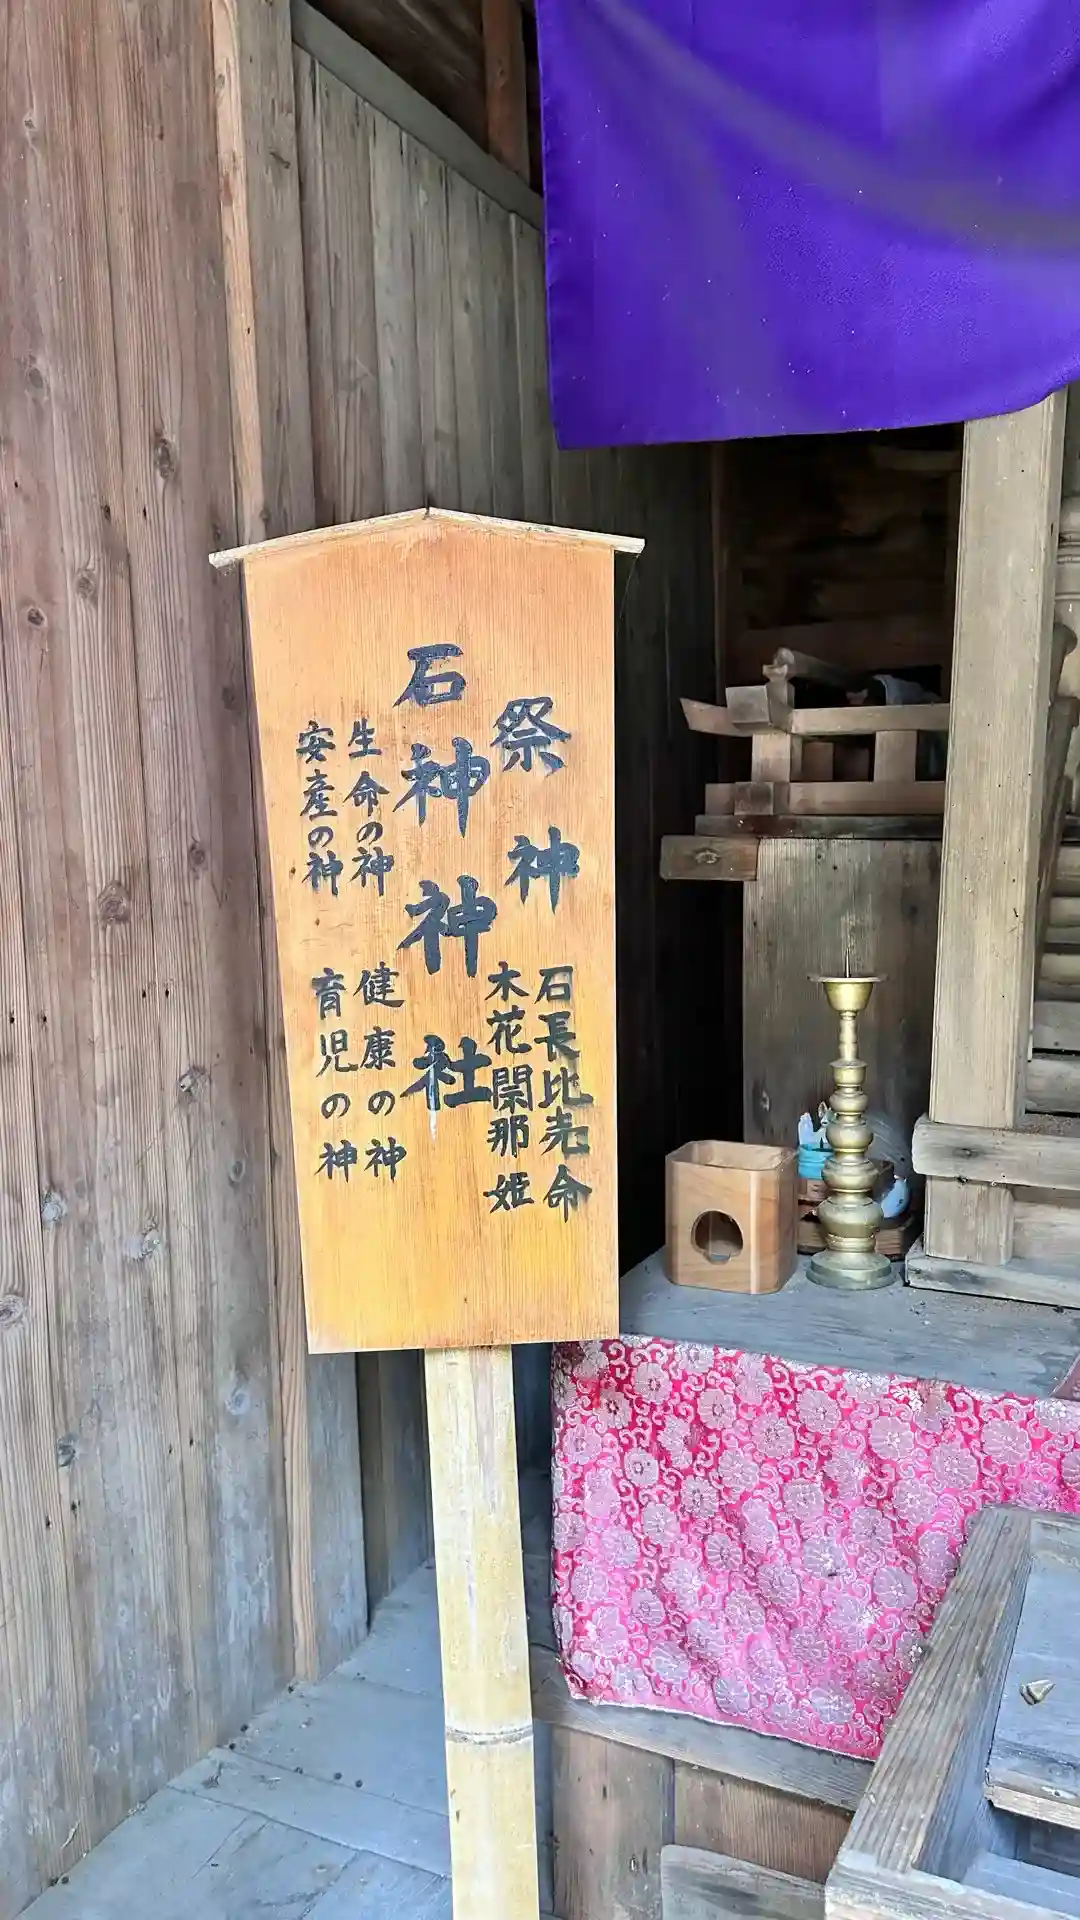 祭神
石長比売命
木花開那姫
石神神社
生命の神
健康の神
安産の神
育児の神